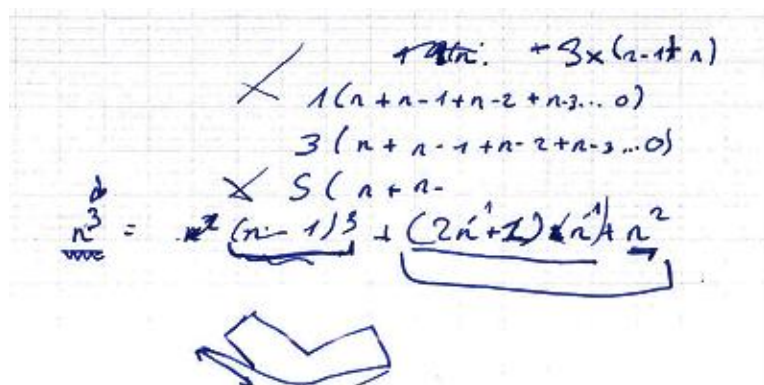 + 3x(n-1+n)
1(n+n-1+n-2+n-3...0)
3(n+n-1+n-2+n-3...0)
5(n+n-
n³ = (n-1)³ + (2n¹+1)x(n¹)+n²